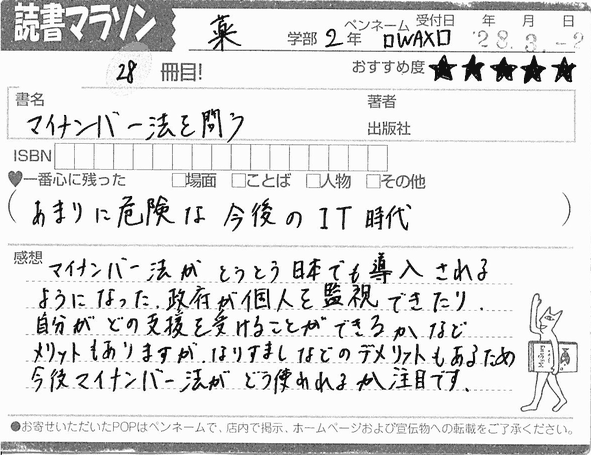 読書マラソン
薬 学部 2年 ペンネーム ロWAXロ 受付日 年 月 日 '28.3.-2
28 冊目!
おすすめ度 ★★★★★
書名 マイナンバー法を問う
著者
出版社
ISBN
♥一番心に残った □場面 □ことば □人物 □その他
(あまりに危険な今後のIT時代)
感想
マイナンバー法がとうとう日本でも導入される
ようになった。政府が個人を監視できたり、
自分がどの支援を受けることができるかなど
メリットもありますが、なりすましなどのデメリットもあるため
今後マイナンバー法がどう使われるか注目です。
●お寄せいただいたPOPはペンネームで、店内で掲示、ホームページおよび宣伝物への転載をご了承ください。